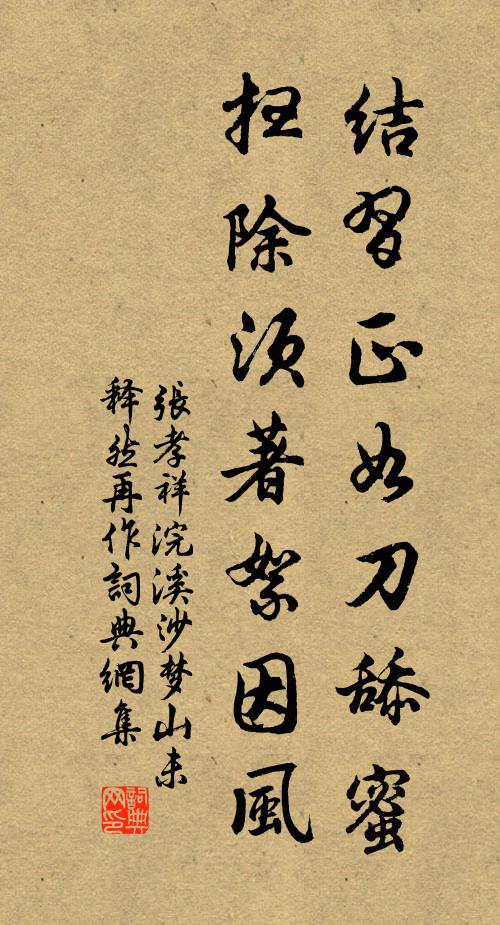 结習正如刀舔蜜
扫除须著絮因風
張孝祥浣溪沙梦山未
释然再作詞典網集
詞典網印